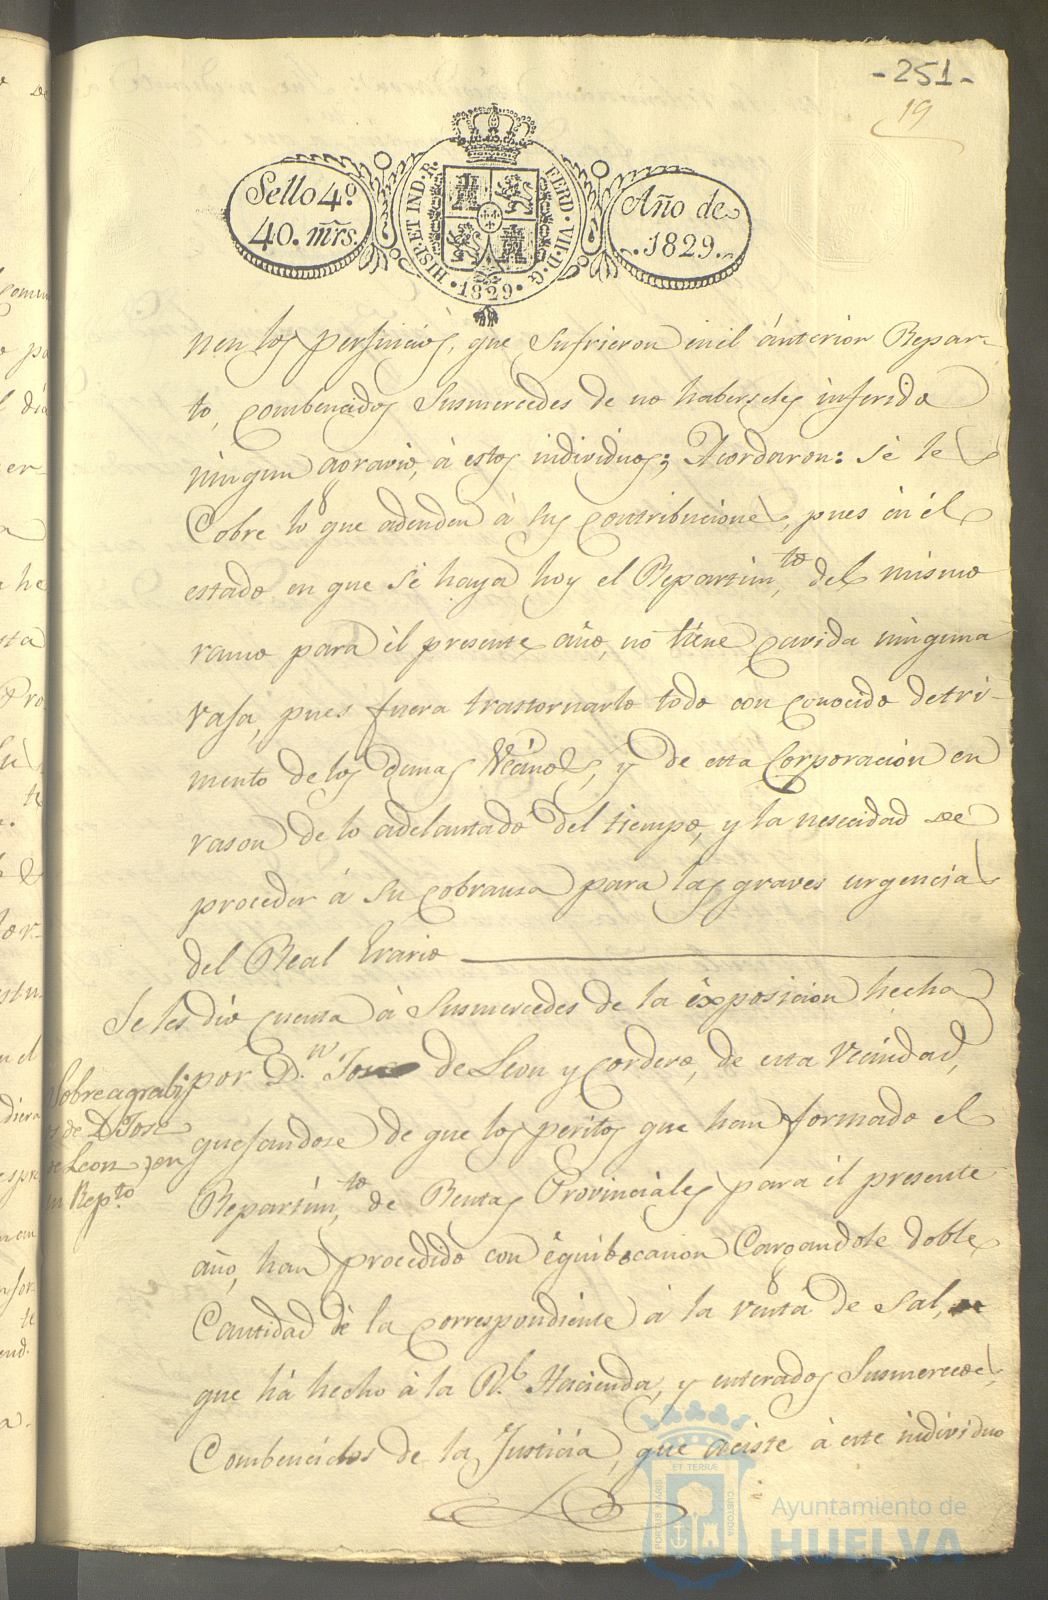 -251-
19
Sello 4º.
40. mrs.
HISP. ET IND. R.
FERD. VII. D. G.
1829
Año de
1829.
nen los perjuicios, que sufrieron en el ánterior Repar-
to, combencidos Susmercedes de no haberseles inferido
ningun agravio, á estos individuos; Acordaron: se le
Cobre lo que adenden à sus contribuciones, pues en él
estado en que se haya hoy el Repartim.to del mismo
ramo para él presente año, no tiene cavida ninguna
vaja, pues fuera trastornarlo todo con conocido detri-
mento de los demas Vecinos, y de esta Corporacion en
rason de lo adelantado del tiempo, y la nesecidad de
proceder á su cobransa para las graves urgencias
del Real Erario
Se les dio cuenta á Susmercedes de la éxposicion hecha
por D.n Jose de Leon y Cordero, de esta Vecindad,
Sobre agrabi
os de D. Jose
de Leon, en
su Rep.to
quejandose de que los peritos que han formado el
Repartim.to de Rentas Provinciales para él presente
año, han procedido con équibocacion Cargandole doble
Cantidad de la correspondiente á la venta de Sal,
que há hecho á la R.l Hacienda, y enterados Susmercedes
Combencidos de la Justicia, que aciste á este individuo
PORTUS MARIS
ET TERRÆ
CUSTODIA
Ayuntamiento de
HUELVA